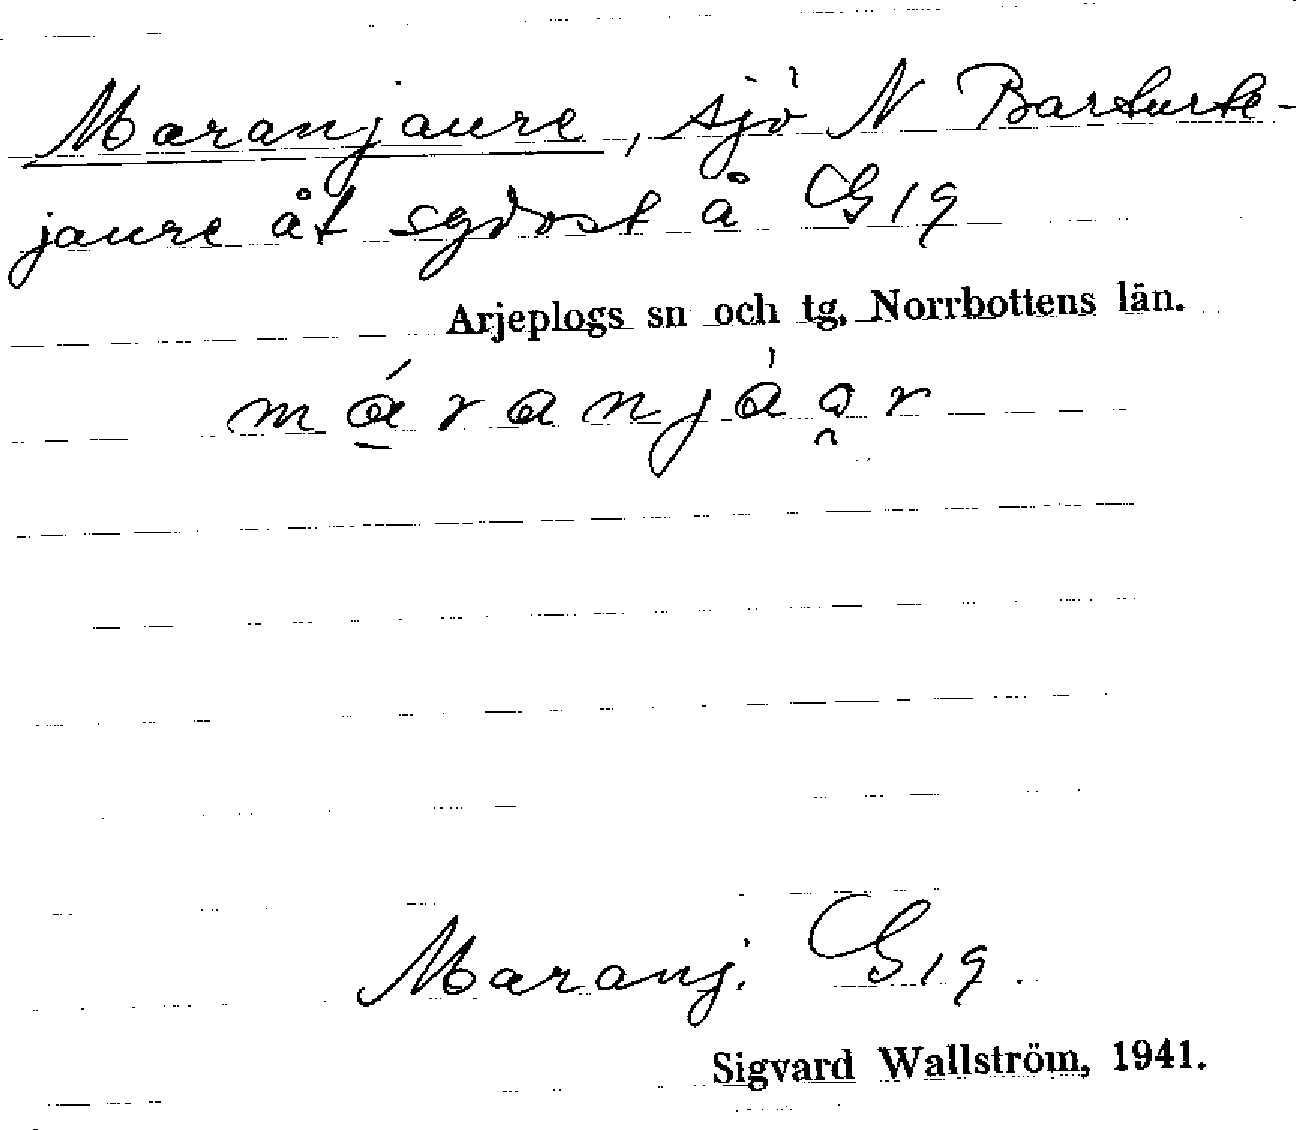 Maranjaure, sjö N Barturte-
jaure åt sydost å G19
Arjeplogs sn och tg, Norrbottens län.
máranjàor
Maranj. G19.
Sigvard Wallström, 1941.